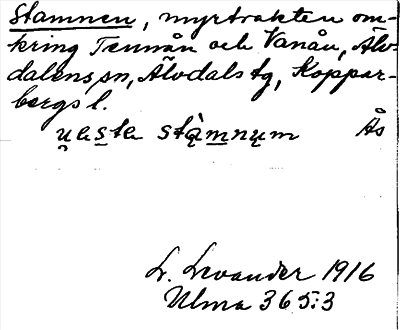 Stamnen, myrtrakten om-
kring Tennån och Vanån, Älv-
dalens sn, Älvdals tg, Koppar-
bergs l.
stàmnum Ås
L. Levander 1916
Ulma 365:3